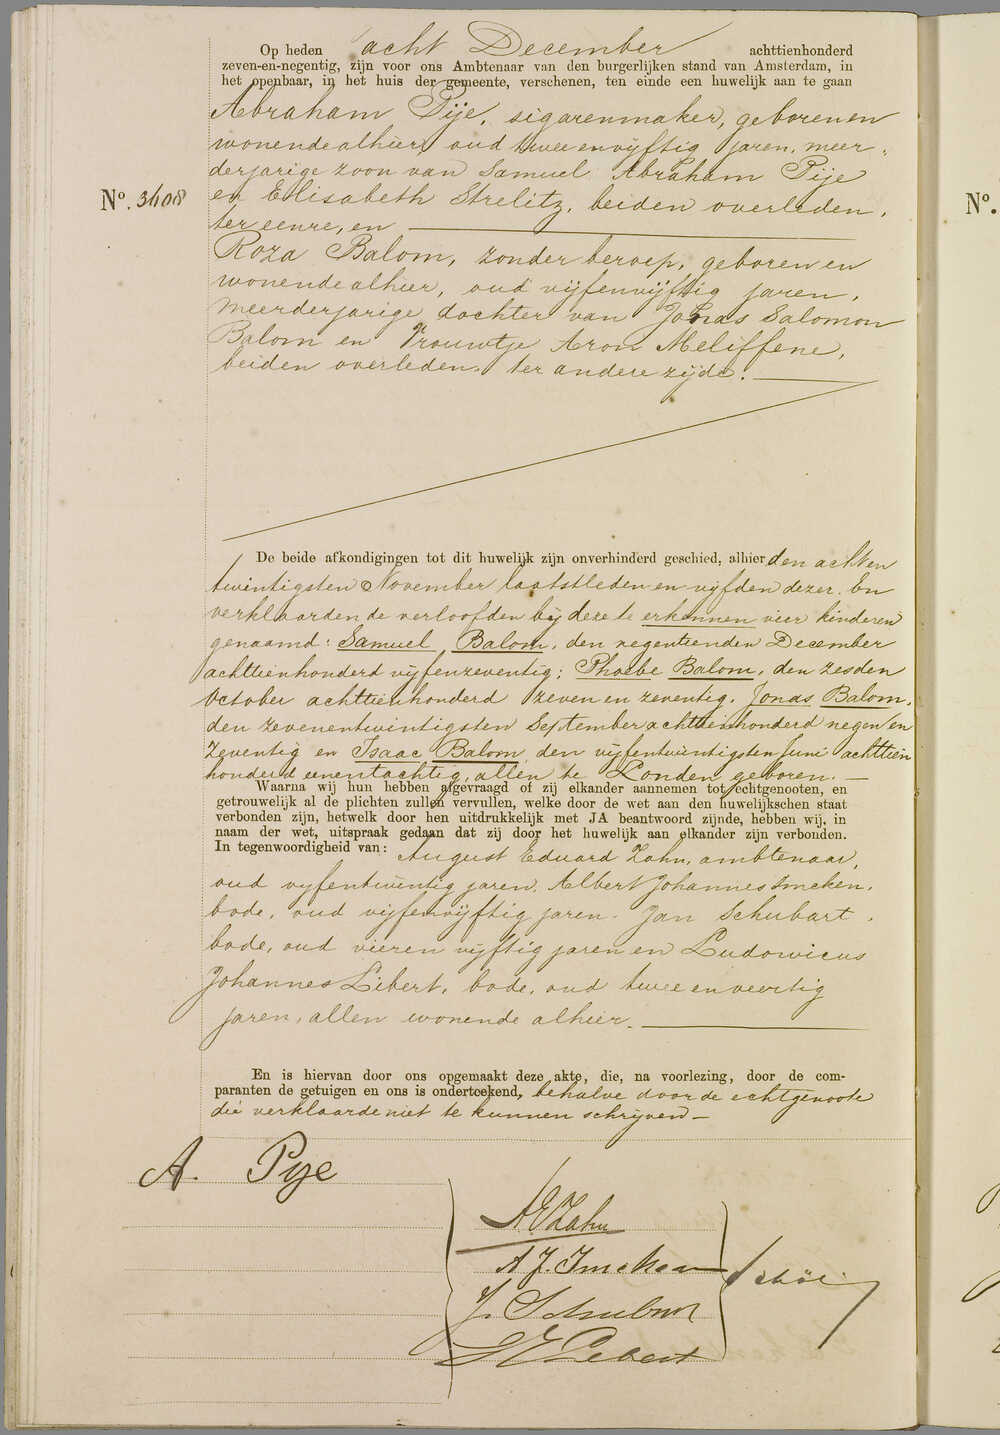 Op heden acht December achttienhonderd
zeven-en-negentig, zijn voor ons Ambtenaar van den burgerlijken stand van Amsterdam, in
het openbaar, in het huis der gemeente, verschenen, ten einde een huwelijk aan te gaan
Abraham Pije, sigarenmaker, geboren en
wonende alhier, oud twee en vijftig jaren, meer-
derjarige zoon van Samuel Abraham Pije
No. 3608
en Elisabeth Strelitz, beiden overleden,
ter eenre, en
Roza Balom, zonder beroep, geboren en
wonende alhier, oud vijfenvijftig jaren,
meerderjarige dochter van Jonas Salomon
Balom en Vrouwtje Aron Meliffene,
beiden overleden, ter andere zijde.
De beide afkondigingen tot dit huwelijk zijn onverhinderd geschied, alhier den achten
twintigsten November laatstleden en vijfden dezer. En
verklaarden de verloofden bij deze te erkennen vier kinderen
genaamd: Samuel Balom, den negentienden December
achttienhonderd vijfenzeventig; Phoebe Balom, den zesden
October achttienhonderd zeven en zeventig, Jonas Balom,
den zevenentwintigsten September achttienhonderd negen en
zeventig en Isaac Balom den vijfentwintigsten Juni achttien
honderd eenentachtig, allen te Londen geboren.
Waarna wij hun hebben afgevraagd of zij elkander aannemen tot echtgenooten, en
getrouwelijk al de plichten zullen vervullen, welke door de wet aan den huwelijkschen staat
verbonden zijn, hetwelk door hen uitdrukkelijk met JA beantwoord zijnde, hebben wij, in
naam der wet, uitspraak gedaan dat zij door het huwelijk aan elkander zijn verbonden.
In tegenwoordigheid van: August Eduard Zahn, ambtenaar,
oud vijfentwintig jaren, Albert Johannes Imeken,
bode, oud vijfenvijftig jaren, Jan Schubart,
bode, oud vieren vijftig jaren en Ludovicus
Johannes Libert, bode, oud twee en veertig
jaren, allen wonende alhier.
En is hiervan door ons opgemaakt deze akte, die, na voorlezing, door de com-
paranten de getuigen en ons is onderteekend, behalve door de echtgenoote
die verklaarde niet te kunnen schrijven
A. Pije
A E Zahn
A. J. Imeken
J. Schubart
Libert
No.